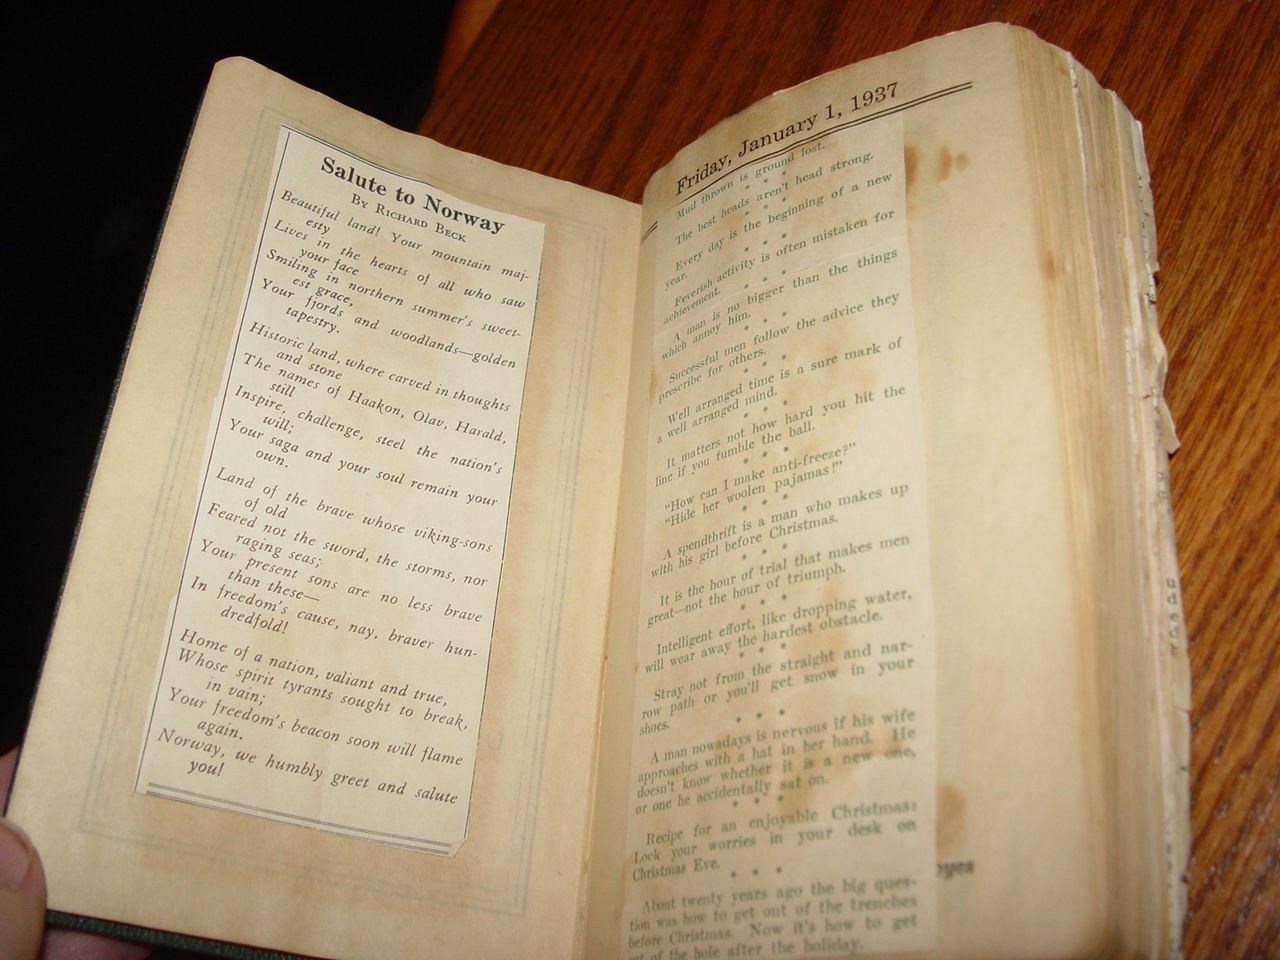 Salute to Norway
By Richard Beck
Beautiful land! Your mountain maj-
esty
Lives in the hearts of all who saw
your face
Smiling in northern summer's sweet-
est grace,
Your fjords and woodlands—golden
tapestry.
Historic land, where carved in thoughts
and stone
The names of Haakon, Olav, Harald,
still
Inspire, challenge, steel the nation's
will;
Your saga and your soul remain your
own.
Land of the brave whose viking-sons
of old
Feared not the sword, the storms, nor
raging seas;
Your present sons are no less brave
than these—
In freedom's cause, nay, braver hun-
dredfold!
Home of a nation, valiant and true,
Whose spirit tyrants sought to break,
in vain;
Your freedom's beacon soon will flame
again.
Norway, we humbly greet and salute
you!
Friday, January 1, 1937
Mud thrown is ground lost.
* * *
The best heads aren't head strong.
* * *
Every day is the beginning of a new
year.
* * *
Feverish activity is often mistaken for
achievement.
* * *
A man is no bigger than the things
which annoy him.
* * *
Successful men follow the advice they
prescribe for others.
* * *
Well arranged time is a sure mark of
a well arranged mind.
* * *
It matters not how hard you hit the
line if you fumble the ball.
* * *
"How can I make anti-freeze?"
"Hide her woolen pajamas!"
* * *
A spendthrift is a man who makes up
with his girl before Christmas.
* * *
It is the hour of trial that makes men
great—not the hour of triumph.
* * *
Intelligent effort, like dropping water,
will wear away the hardest obstacle.
* * *
Stray not from the straight and nar-
row path or you'll get snow in your
shoes.
* * *
A man nowadays is nervous if his wife
approaches with a hat in her hand. He
doesn't know whether it is a new one,
or one he accidentally sat on.
* * *
Recipe for an enjoyable Christmas:
Lock your worries in your desk on
Christmas Eve.
* * *
About twenty years ago the big ques-
tion was how to get out of the trenches
before Christmas. Now it's how to get
out of the hole after the holiday.